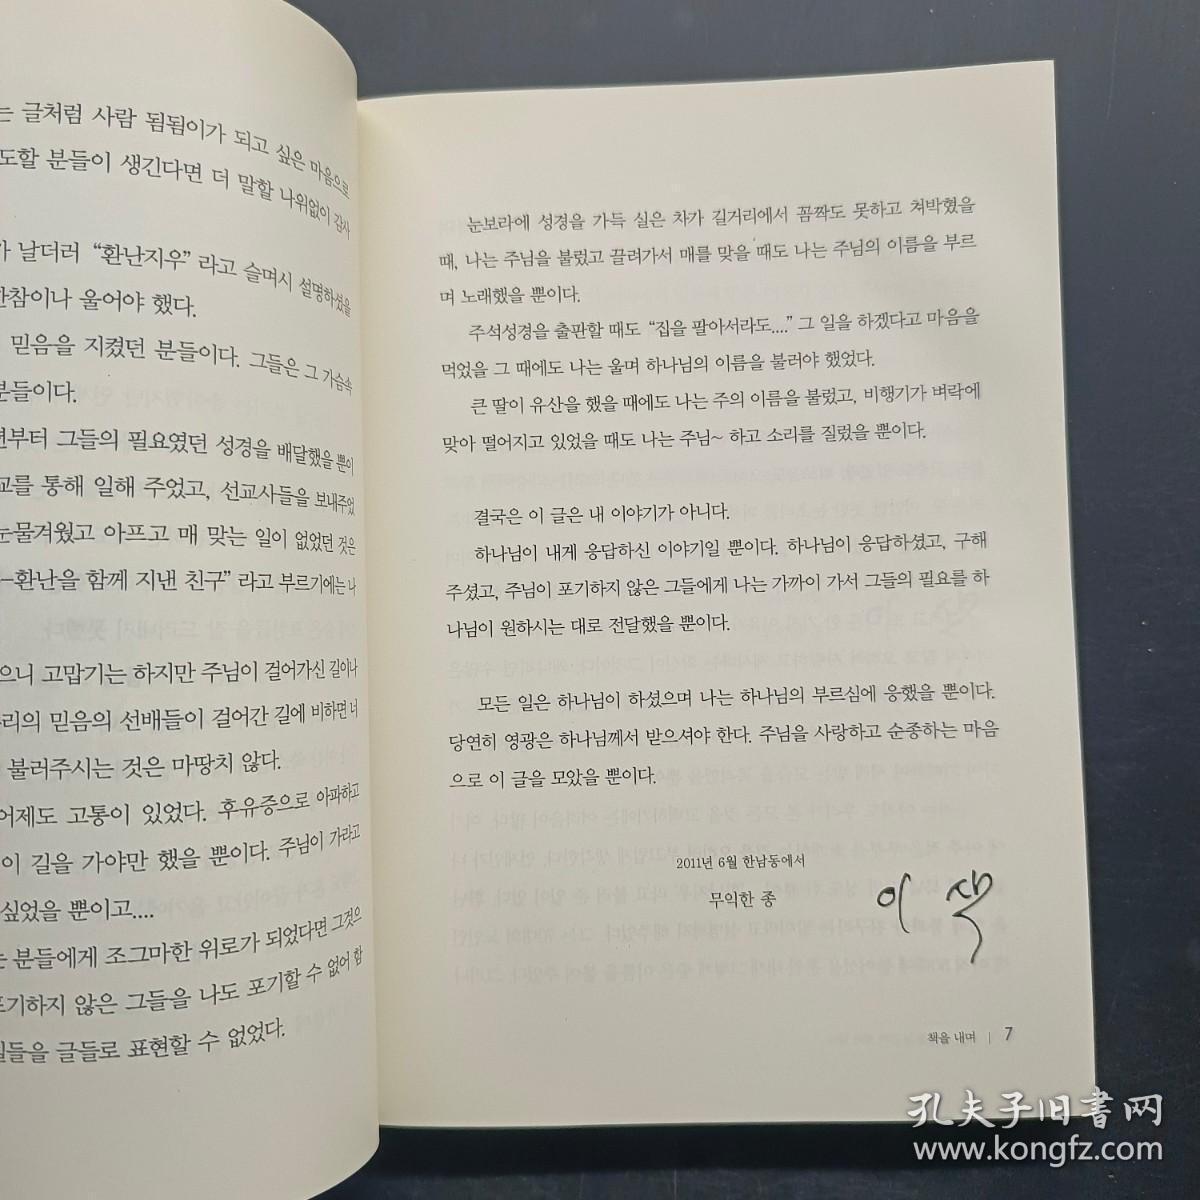 는 글처럼 사람 됨됨이가 되고 싶은 마음으로
도할 분들이 생긴다면 더 말할 나위없이 감사
가 날더러 “환난지우” 라고 슬며시 설명하셨을
한참이나 울어야 했다.
믿음을 지켰던 분들이다. 그들은 그 가슴속
분들이다.
년부터 그들의 필요였던 성경을 배달했을 뿐이
교를 통해 일해 주었고, 선교사들을 보내주었
눈물겨웠고 아프고 매 맞는 일이 없었던 것은
-환난을 함께 지낸 친구” 라고 부르기에는 나
으니 고맙기는 하지만 주님이 걸어가신 길이나
우리의 믿음의 선배들이 걸어간 길에 비하면 너
불러주시는 것은 마땅치 않다.
어제도 고통이 있었다. 후유증으로 아파하고
이 길을 가야만 했을 뿐이다. 주님이 가라고
싶었을 뿐이고....
는 분들에게 조그마한 위로가 되었다면 그것으
포기하지 않은 그들을 나도 포기할 수 없어 함
일들을 글들로 표현할 수 없었다.
눈보라에 성경을 가득 실은 차가 길거리에서 꼼짝도 못하고 쳐박혔을
때, 나는 주님을 불렀고 끌려가서 매를 맞을 때도 나는 주님의 이름을 부르
며 노래했을 뿐이다.
주석성경을 출판할 때도 “집을 팔아서라도....” 그 일을 하겠다고 마음을
먹었을 그 때에도 나는 울며 하나님의 이름을 불러야 했었다.
큰 딸이 유산을 했을 때에도 나는 주의 이름을 불렀고, 비행기가 벼락에
맞아 떨어지고 있었을 때도 나는 주님~ 하고 소리를 질렀을 뿐이다.
결국은 이 글은 내 이야기가 아니다.
하나님이 내게 응답하신 이야기일 뿐이다. 하나님이 응답하셨고, 구해
주셨고, 주님이 포기하지 않은 그들에게 나는 가까이 가서 그들의 필요를 하
나님이 원하시는 대로 전달했을 뿐이다.
모든 일은 하나님이 하셨으며 나는 하나님의 부르심에 응했을 뿐이다.
당연히 영광은 하나님께서 받으셔야 한다. 주님을 사랑하고 순종하는 마음
으로 이 글을 모았을 뿐이다.
2011년 6월 한남동에서
무익한 종
이 삭
책을 내며 | 7
孔夫子旧书网
www.kongfz.com